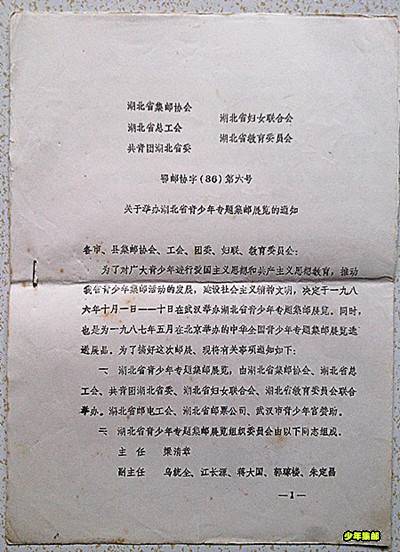 湖北省集邮协会
湖北省妇女联合会
湖北省总工会
湖北省教育委员会
共青团湖北省委
鄂邮协字(86)第六号
关于举办湖北省青少年专题集邮展览的通知
各市、县集邮协会、工会、团委、妇联、教育委员会:
为了对广大青少年进行爱国主义思想和共产主义思想教育,推动
我省青少年集邮活动的发展,建设社会主义精神文明,决定于一九八
六年十月一日——十日在武汉举办湖北省青少年专题集邮展览。同时,
也是为一九八七年五月在北京举办的中华全国青少年专题集邮展览遴
选展品。为了搞好这次邮展、现将有关事项通知如下:
一、湖北省青少年专题集邮展览,由湖北省集邮协会、湖北省总
工会、共青团湖北省委、湖北省妇女联合会、湖北省教育委员会联合
举办。湖北省邮电工会、湖北省邮票公司、武汉市青少年宫赞助。
二、湖北省青少年专题集邮展览组织委员会由以下同志组成。
主 任 梁清章
副主任 乌统全、江长源、蒋大国、郭稼楼、朱定昌
—1—
少年集邮